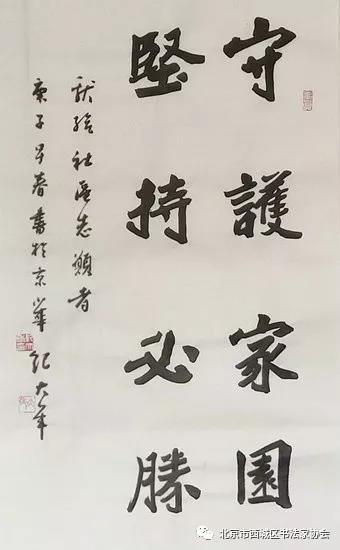 守護家園
堅持必勝
獻給社區志願者
庚子早春書於京華 紀大年
北京市西城区书法家协会